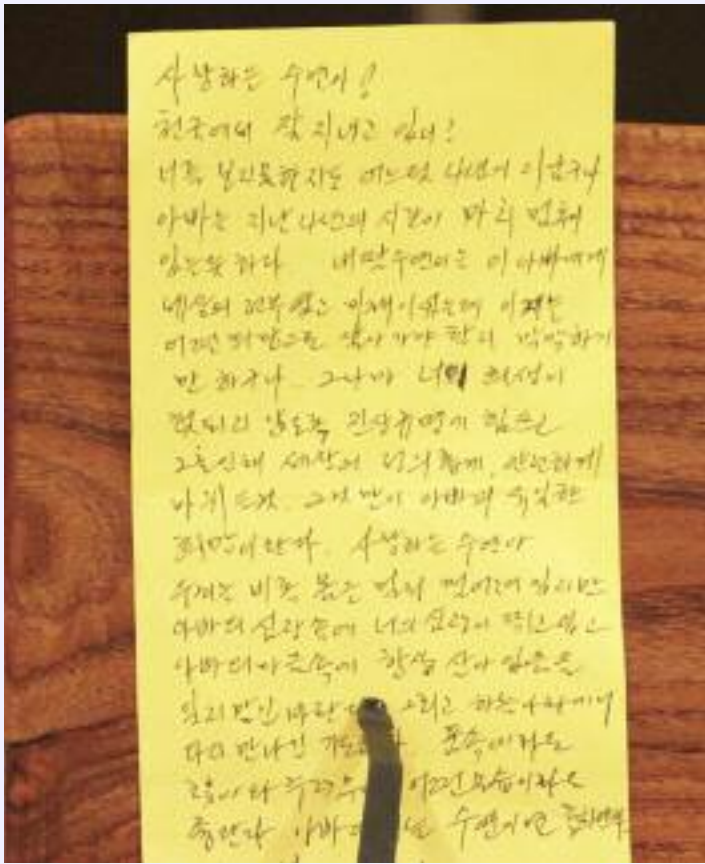 사랑하는 수연아!
천국에서 잘 지내고 있니?
너를 보지못한지도 어느덧 4년이 지났구나
아빠는 지난 4년의 시간이 마치 멈춰
있는듯 하다 내딸수연이는 이 아빠에게
세상의 전부였고 이제는
어떤 희망으로 살아가야 할지 막막하기
만 하구나. 그나마 너의 희생이
헛되지 않도록 진상규명에 힘쓰고
그로인해 세상이 안전하게
바뀌 그것만이 아빠의 유일한
희망이란다. 사랑하는 수연아
우리는 비록 몸은 멀리 떨어져 있지만
아빠의 심장속에 너의 심장이 뛰고 있고
아빠의 가슴속에 항상 살아 있음을
잊지말인 바란 그리고 하늘나라에서
다시 만나길 꿈속에라도
어떤모습이라도
좋단다 아빠 수연이면